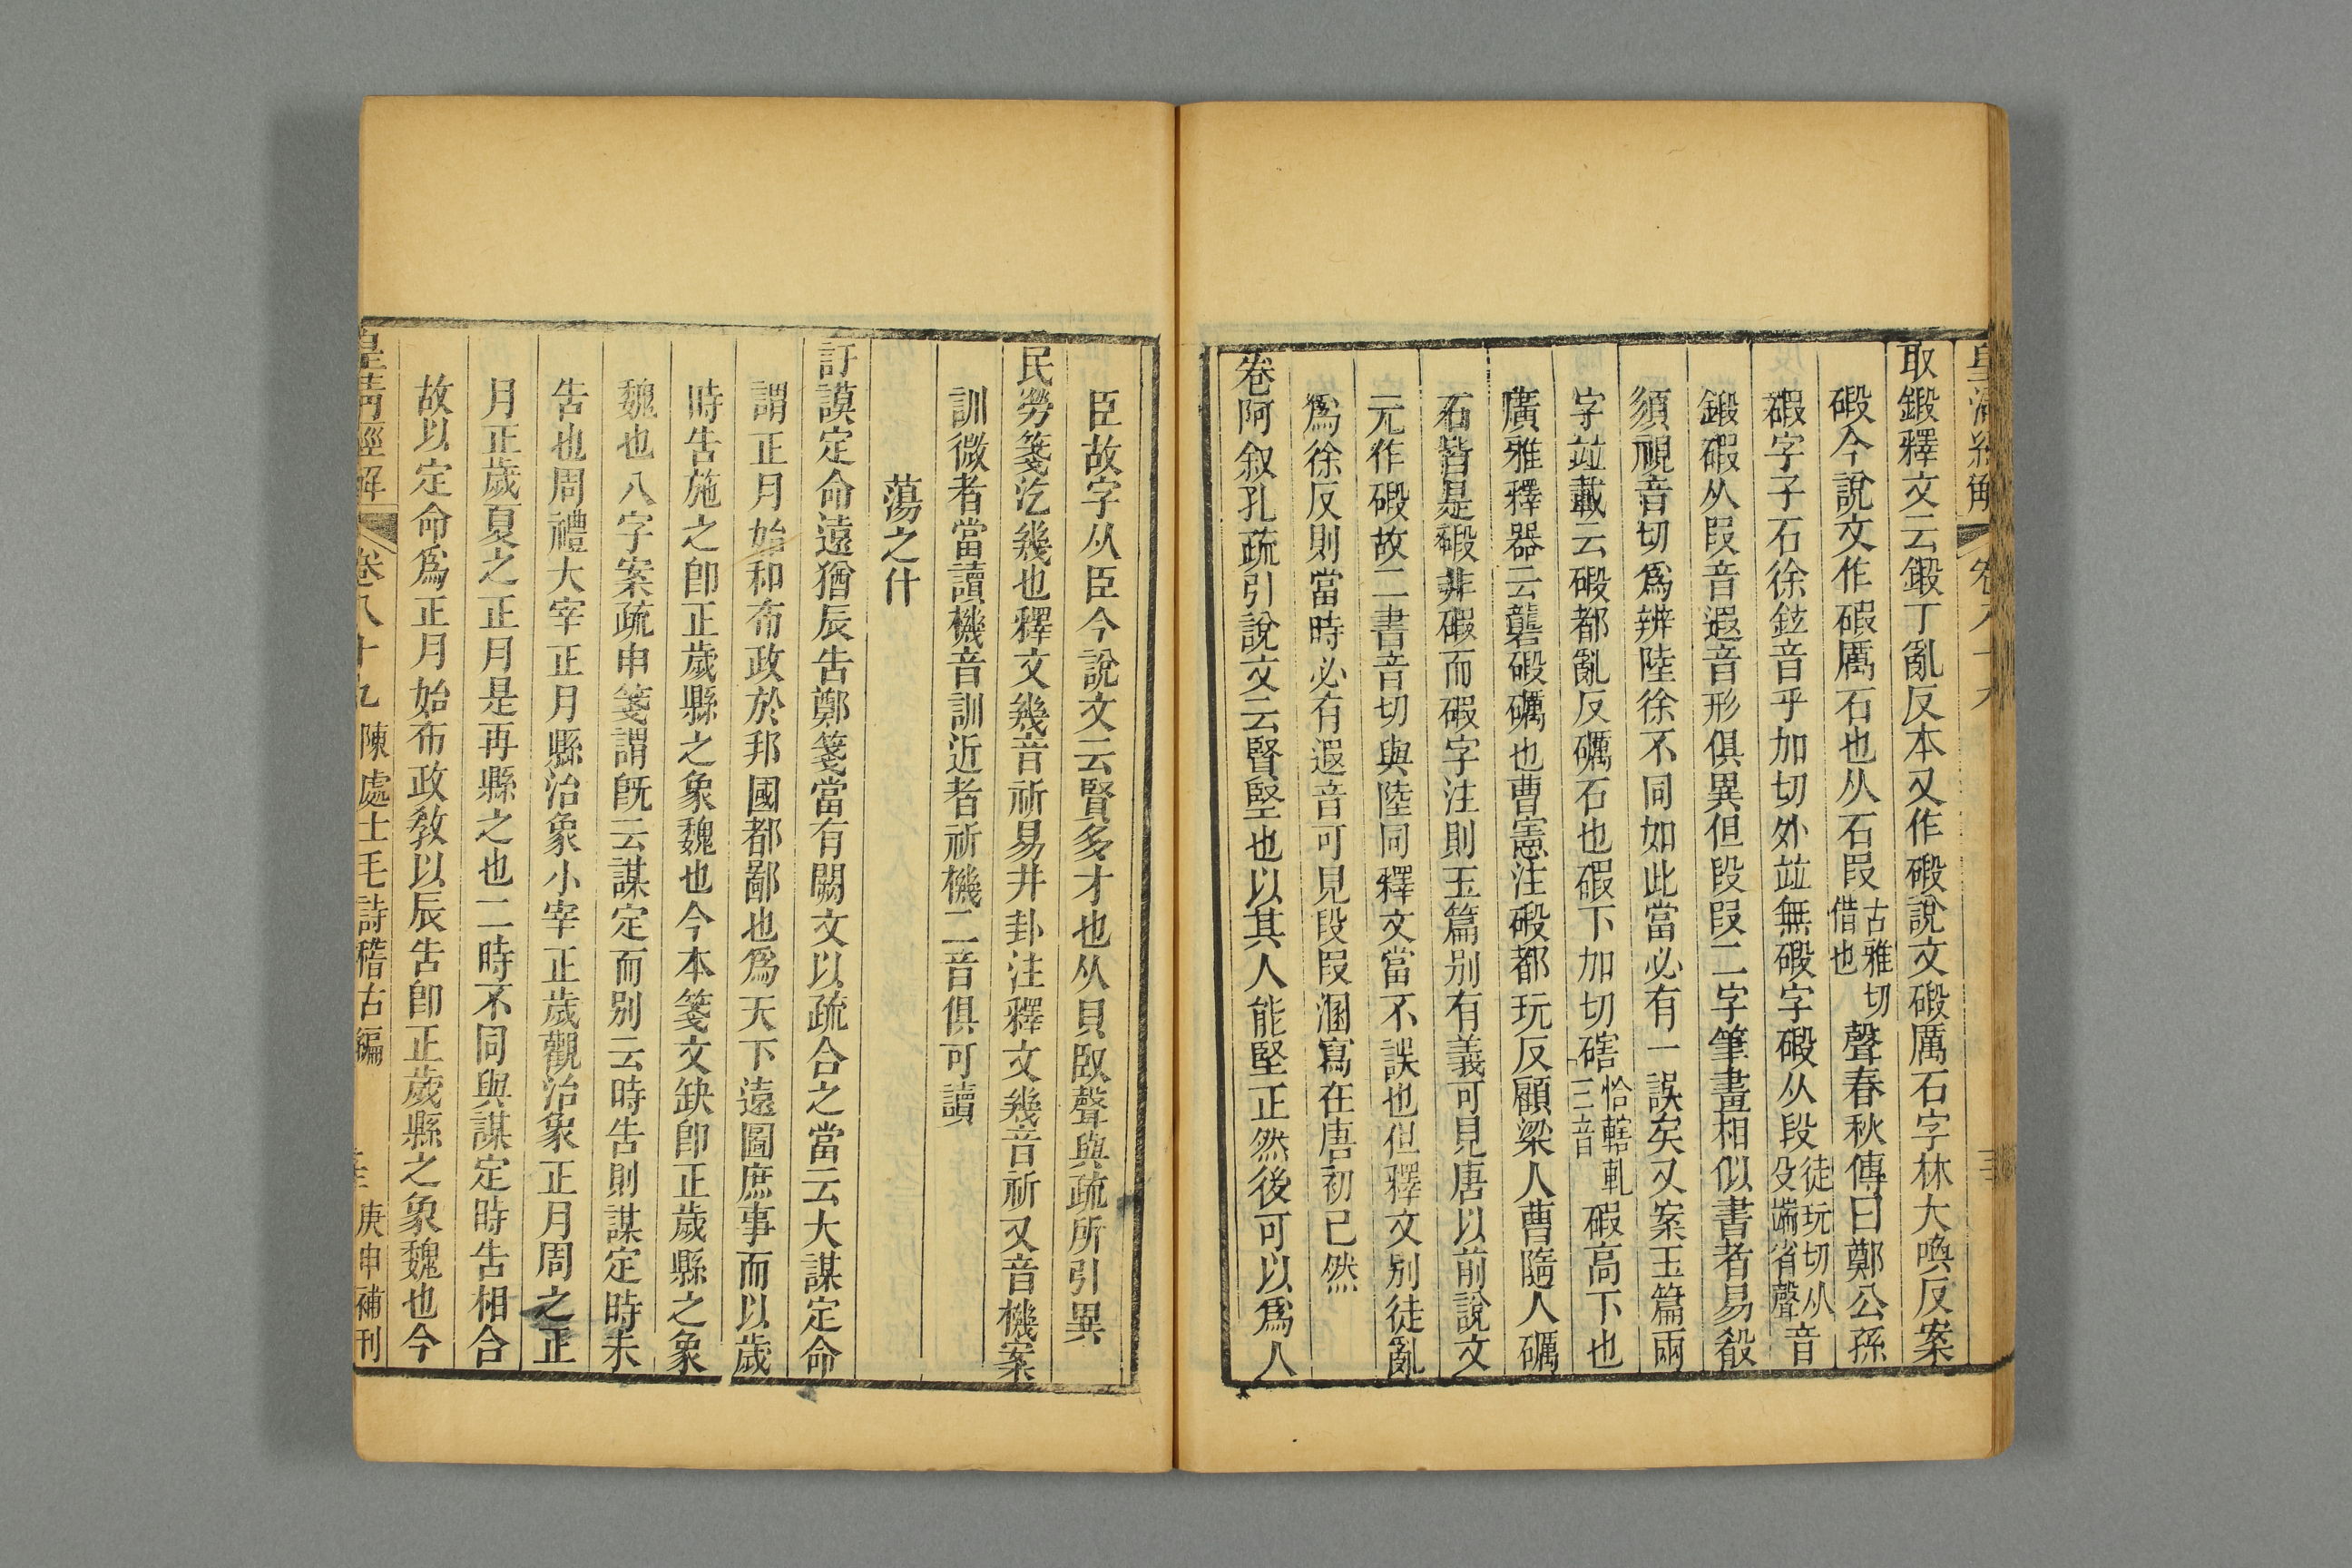 皇清經解 卷八十九
取鍛釋文云鍛丁亂反本又作碫說文碫厲石字林大喚反案
碫今說文作碬厲石也从石叚古雅切借也聲春秋傳曰鄭公孫
碬字子石徐鉉音乎加切外竝無碫字碫从段徒玩切从殳耑省聲音
鍛碬从叚音遐音形俱異但段叚二字筆畫相似書者易殽
須視音切爲辨陸徐不同如此當必有一誤矣又案玉篇兩
字竝載云碫都亂反礪石也碬下加切磍恰轄軋三音碬高下也
廣雅釋器云礱碫礪也曹憲注碫都玩反顧梁人曹隨人礪
石皆是碫非碬而碬字注則玉篇別有義可見唐以前說文
元作碫故二書音切與陸同釋文當不誤也但釋文別徒亂
爲徐反則當時必有遐音可見段叚溷寫在唐初已然
卷阿叙孔疏引說文云賢堅也以其人能堅正然後可以爲人
臣故字从臣今說文云賢多才也从貝臤聲與疏所引異
民勞箋汔幾也釋文幾音祈易井卦注釋文幾音祈又音機案
訓微者當讀機音訓近者祈機二音俱可讀
蕩之什
訏謨定命遠猶辰告鄭箋當有闕文以疏合之當云大謀定命
謂正月始和布政於邦國都鄙也爲天下遠圖庶事而以歲
時告施之卽正歲縣之象魏也今本箋文缺卽正歲縣之象
魏也八字案疏申箋謂旣云謀定而別云時告則謀定時未
告也周禮大宰正月縣治象小宰正歲觀治象正月周之正
月正歲夏之正月是再縣之也二時不同與謀定時告相合
故以定命爲正月始布政敎以辰告卽正歲縣之象魏也今
皇清經解 卷八十九 陳處士毛詩稽古編 庚申補刊